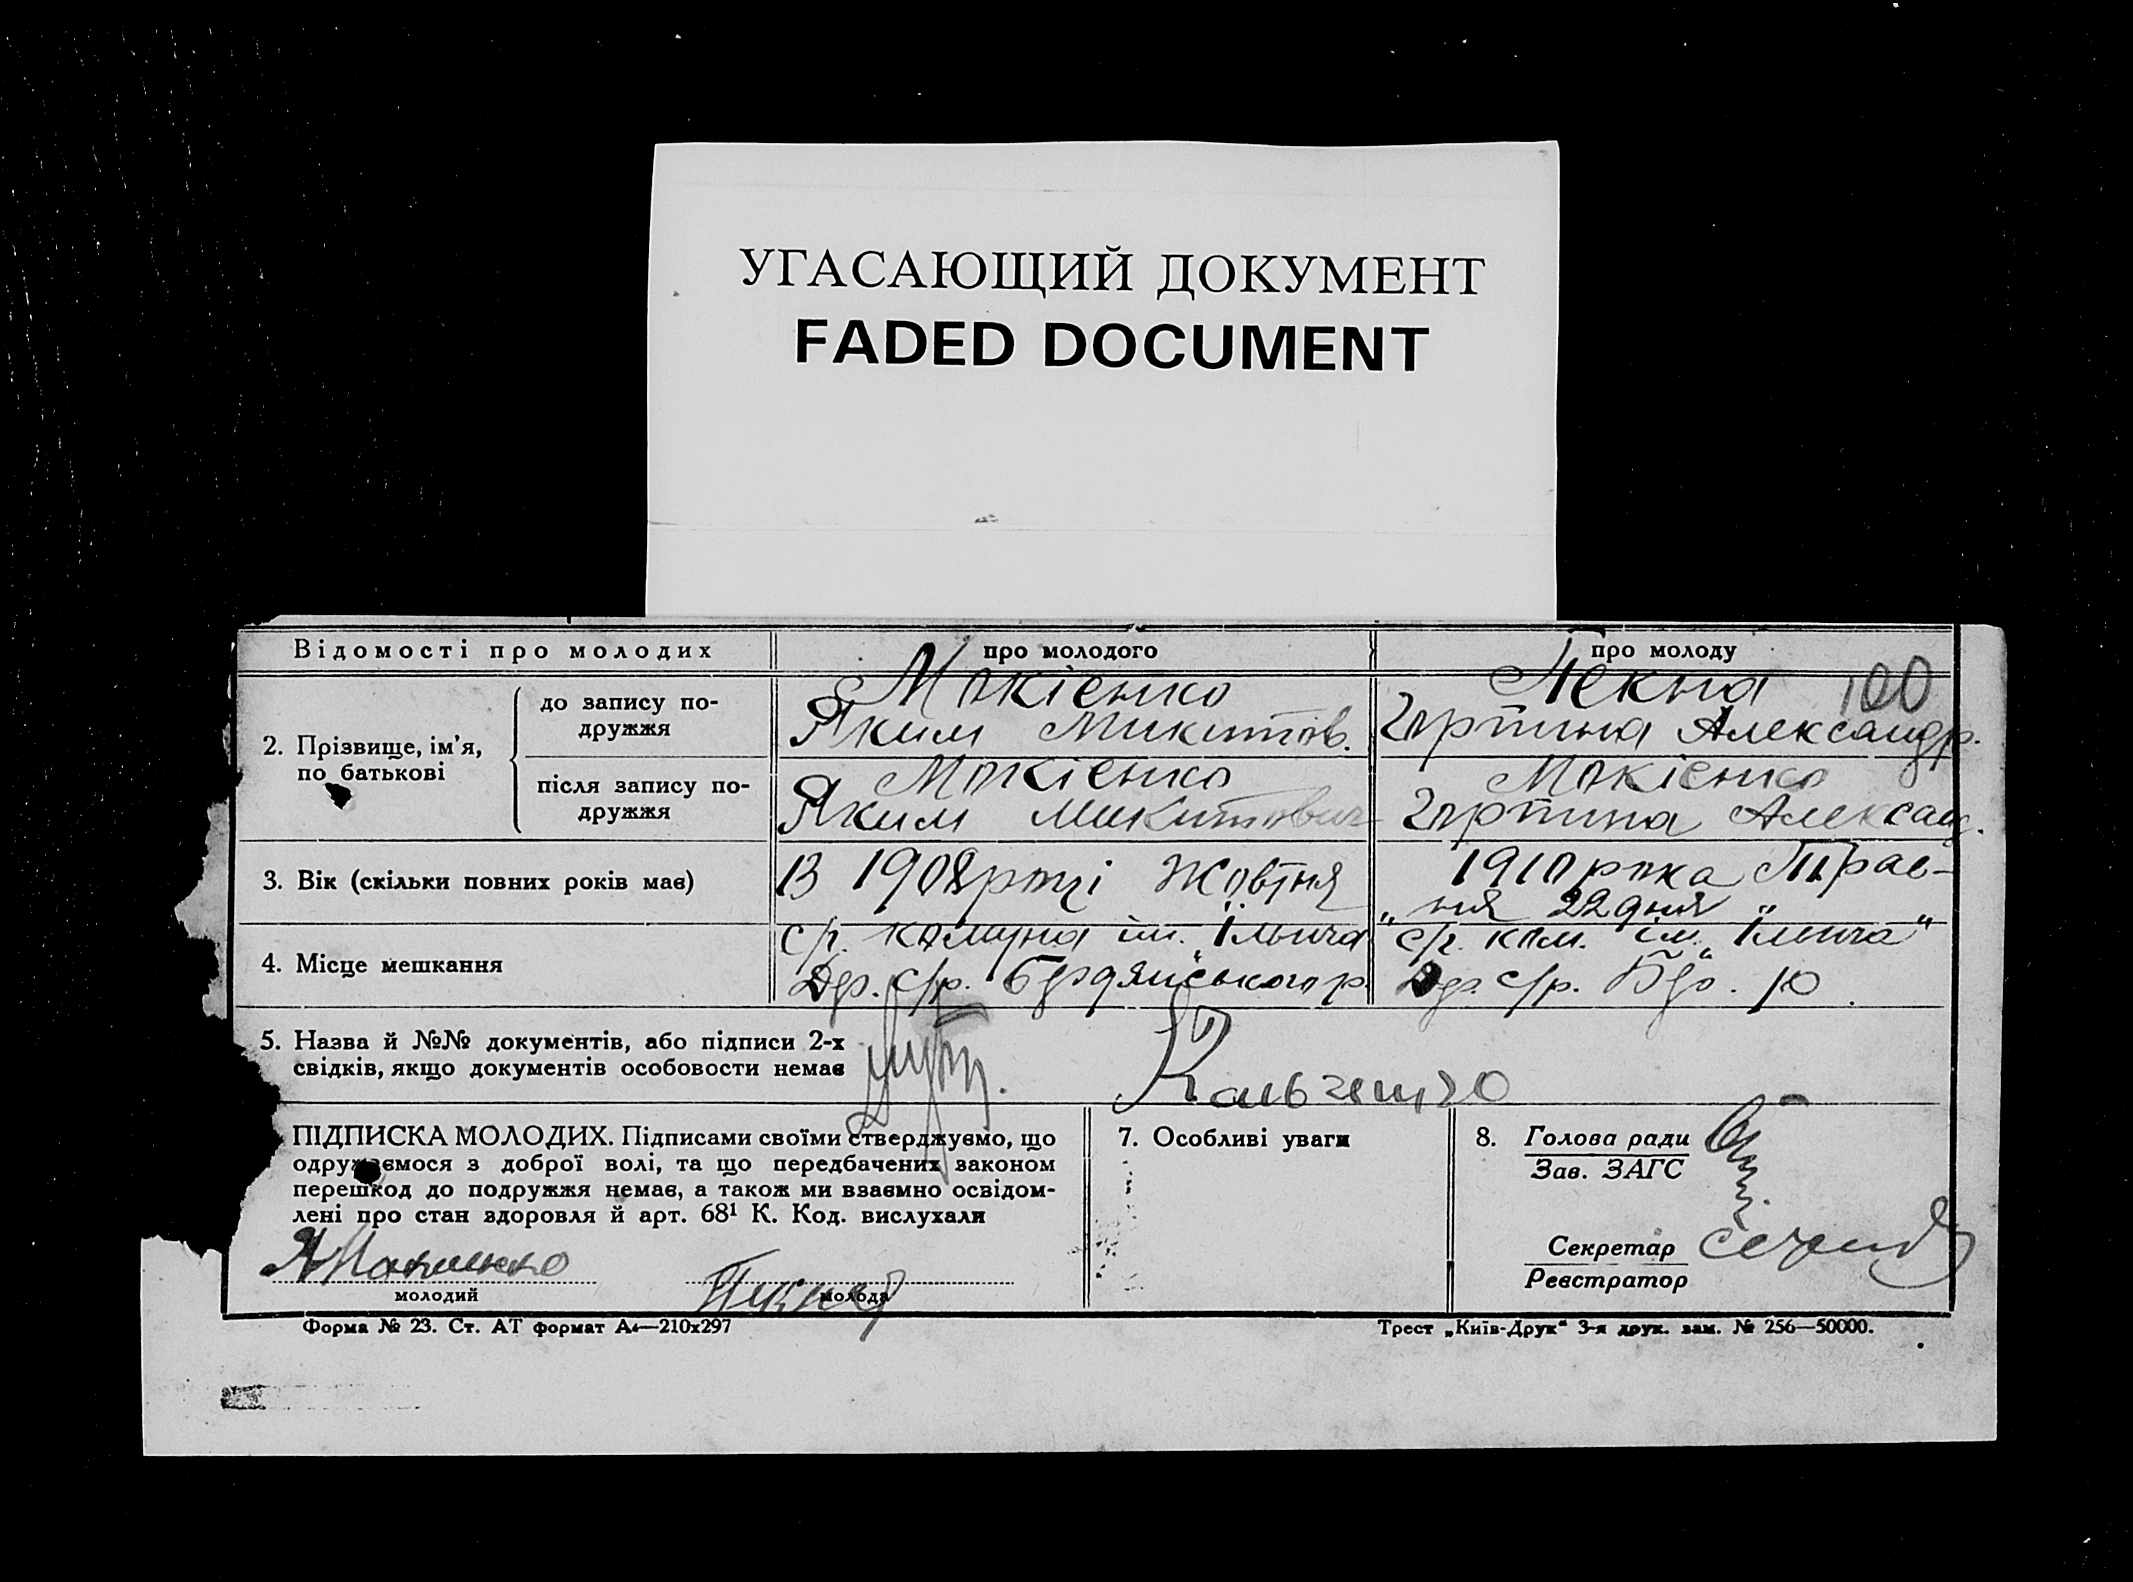 УГАСАЮЩИЙ ДОКУМЕНТ
FADED DOCUMENT
Відомості про молодих
про молодого
про молоду
100
2. Прізвище, ім'я,
по батькові
до запису по-
дружжя
Мокієнко
Яким Микитов.
Пекна
Горпина Александр.
після запису по-
дружжя
Мокієнко
Яким Микитович
Мокієнко
Горпина Александ.
3. Вік (скільки повних років має)
В 1908 році Жовтня
1910 рока Трав-
„ня 22 дня"
4. Місце мешкання
с/г. комуна ім. „Ільича"
Др. с/р. Бердянського р.
с/г. ком. ім. „Ільича"
Др. с/р. Бер. р
5. Назва й №№ документів, або підписи 2-х
свідків, якщо документів особовости немає
ПІДПИСКА МОЛОДИХ. Підписами своїми стверджуємо, що
одружуємося з доброї волі, та що передбачених законом
перешкод до подружжя немає, а також ми взаємно освідом-
лені про стан здоровля й арт. 68¹ К. Код. вислухали
молодий
молода
7. Особливі уваги
8. Голова ради
Зав. ЗАГС
Секретар
Реєстратор
Форма № 23. Ст. АТ формат А4—210х297
Трест „Київ-Друк" 3-я друк. зам. № 256—50000.